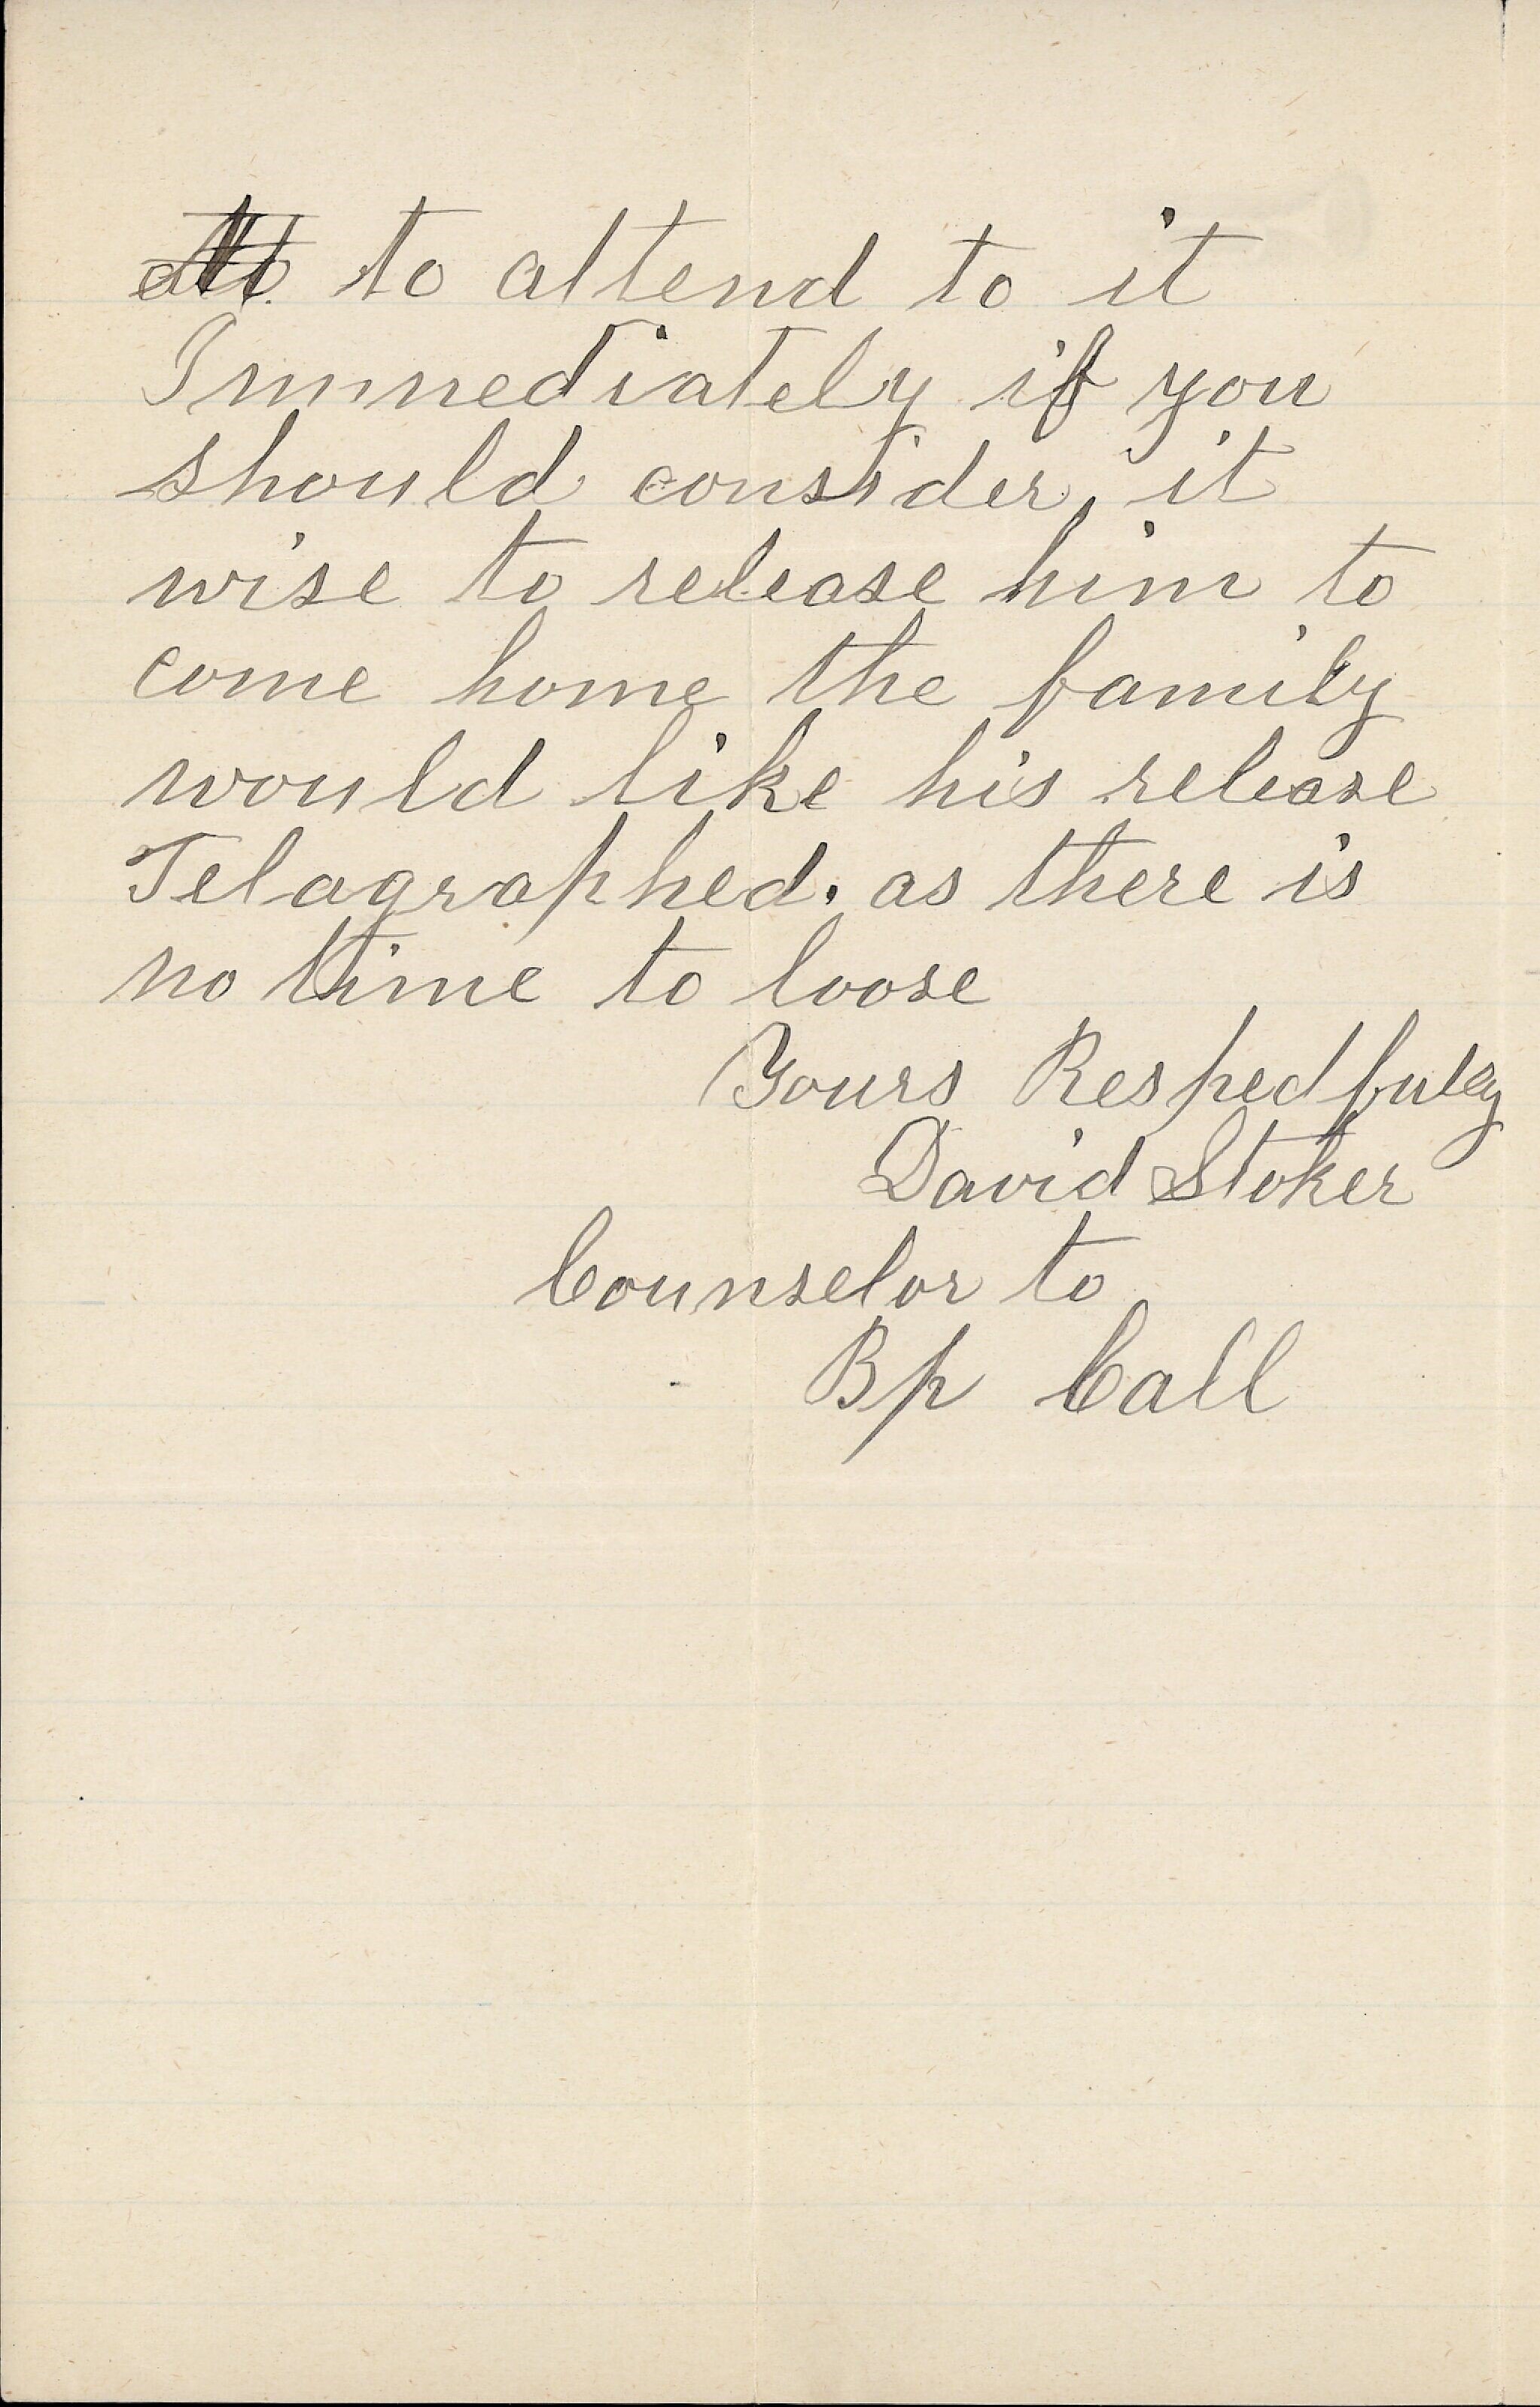 to attend to it
Immediately if you
should consider it
wise to release him to
come home the family
would like his release
Telagraphed. as there is
no time to loose
Yours Respectfully
David Stoker
Counselor to
Bp Call